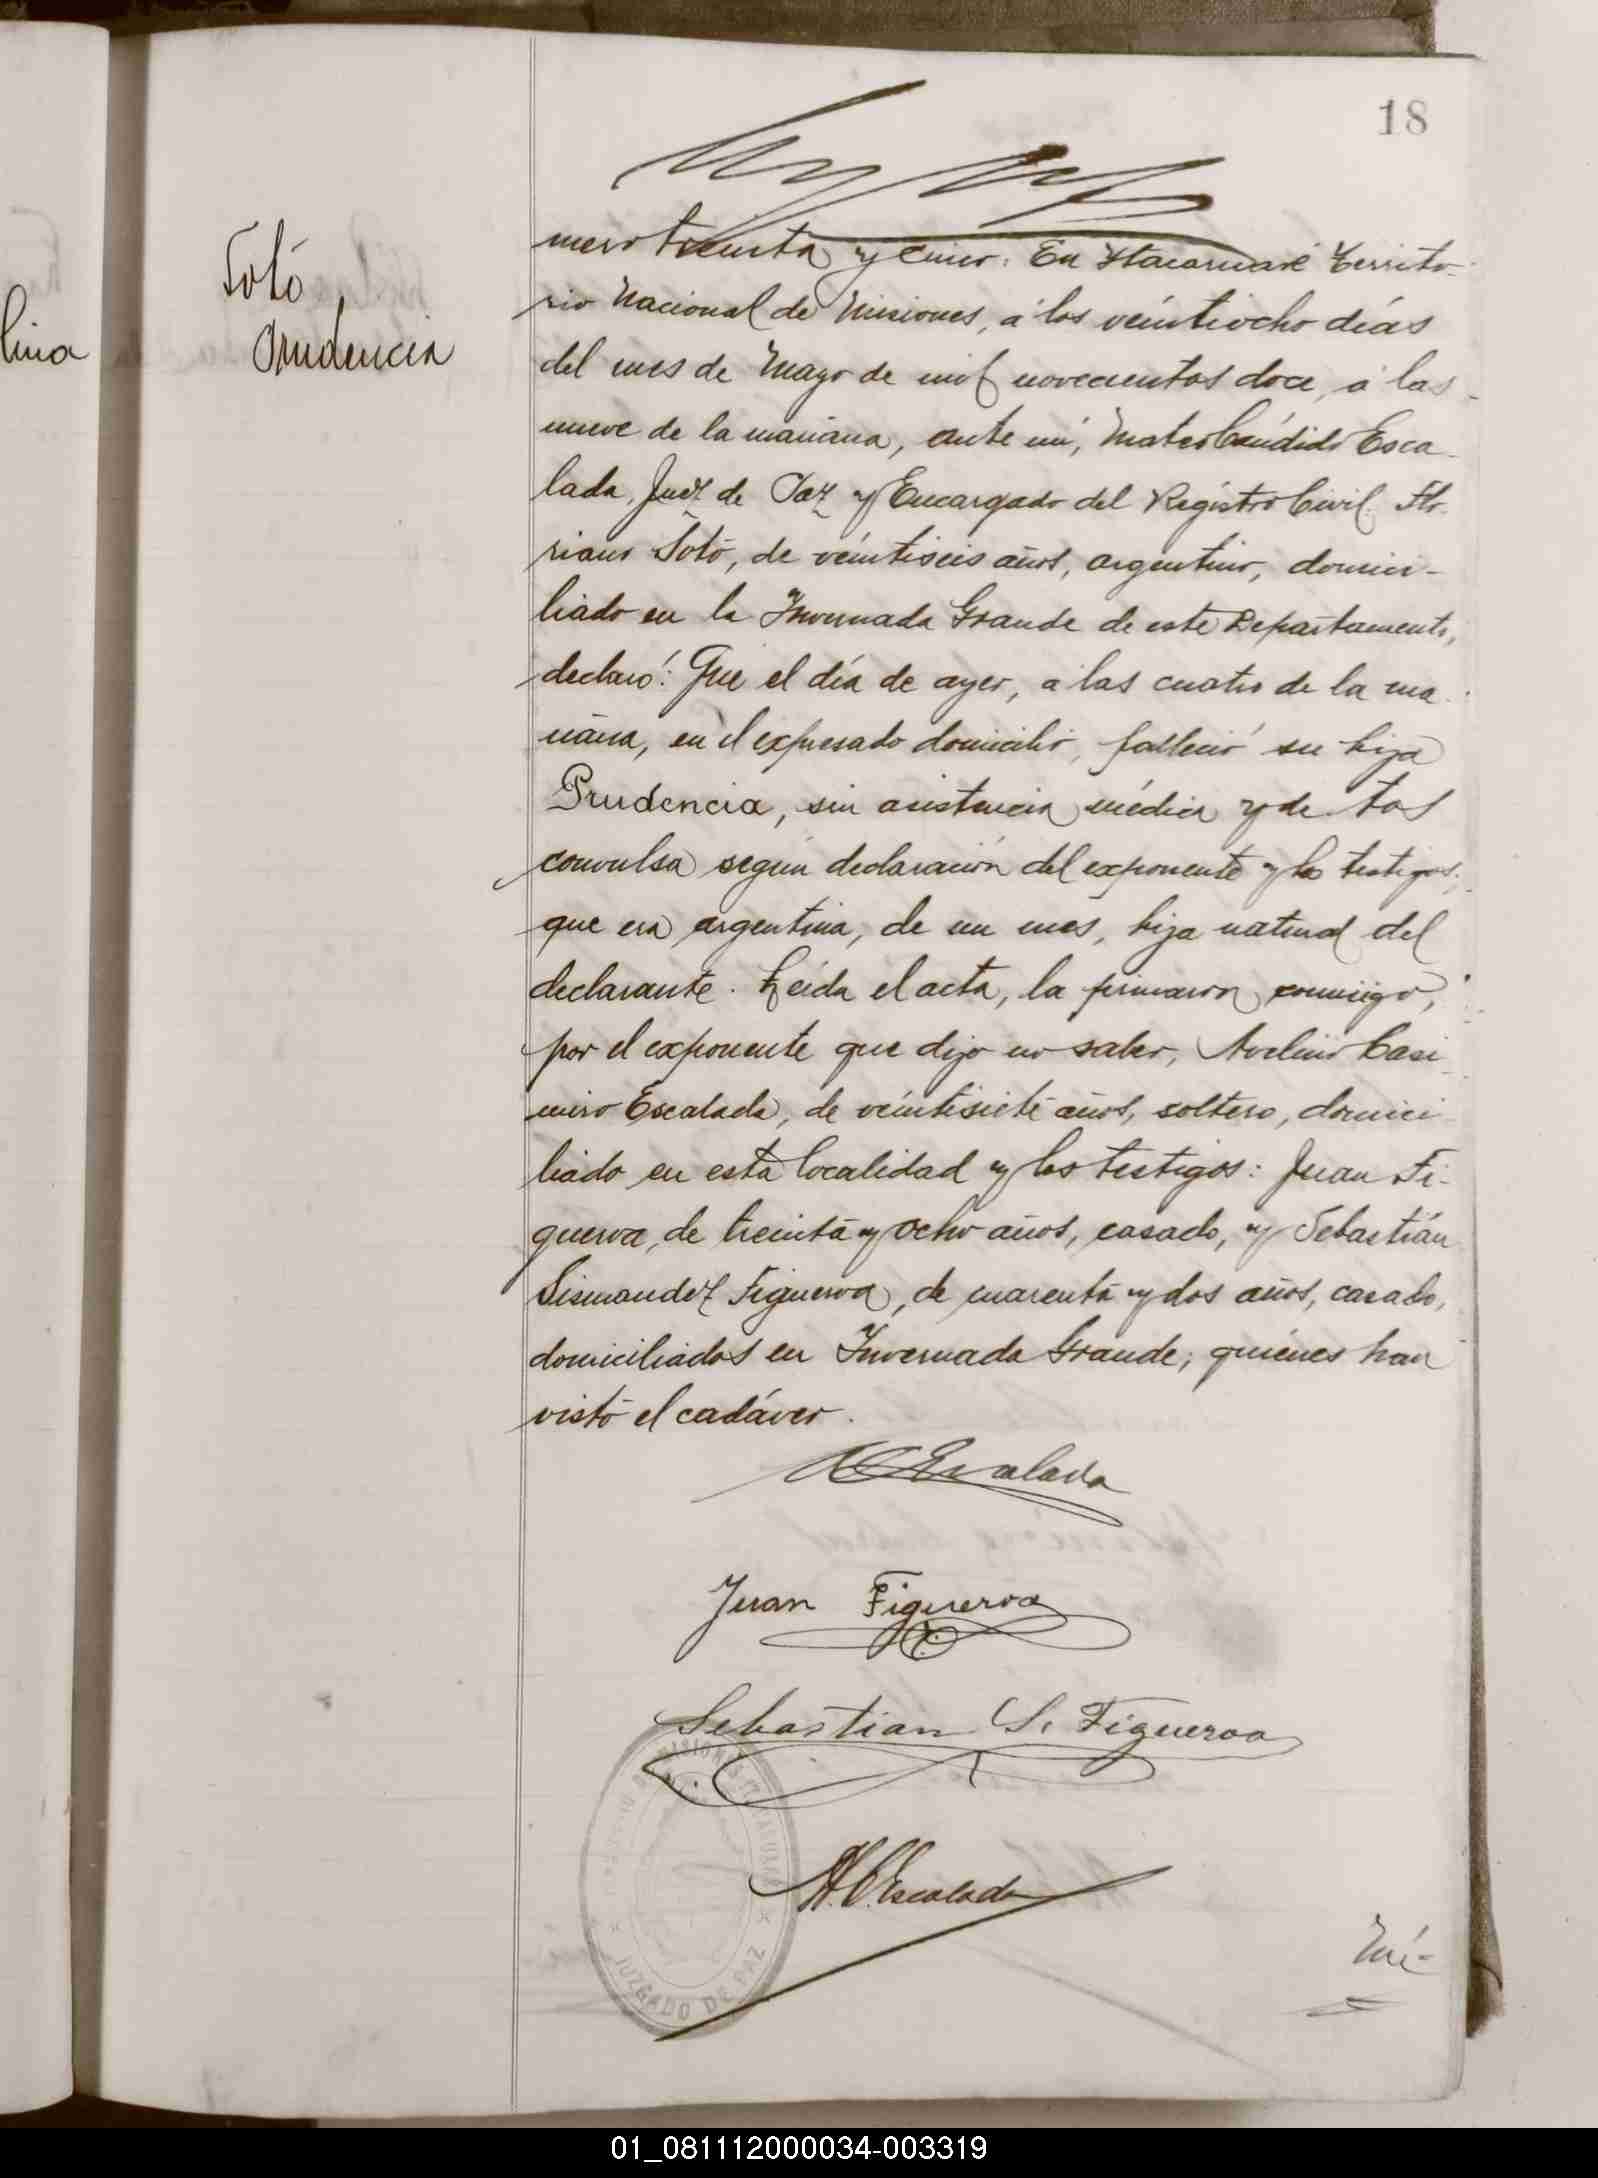 18
lina
Soto
Prudencia
mero treinta y cinco. En Itacaruaré Territo-
rio Nacional de Misiones, á los veintiocho días
del mes de Mayo de mil novecientos doce, á las
nueve de la mañana, ante mí, Mateo Cándido Esca-
lada, Juez de Paz y Encargado del Registro Civil. Flo-
riano Soto, de veintiseis años, argentino, domici-
liado en la Invernada Grande de este Departamento,
declaró: Que el día de ayer, a las cuatro de la ma-
ñana, en el expresado domicilio, falleció su hija
Prudencia, sin asistencia médica y de tos
convulsa según declaración del exponente y los testigos;
que era argentina, de un mes, hija natural del
declarante. Leída el acta, la firmaron conmigo,
por el exponente que dijo no saber, Avelino Casi-
miro Escalada, de veintisiete años, soltero, domici-
liado en esta localidad y los testigos: Juan Fi-
gueroa, de treinta y ocho años, casado, y Sebastián
Sismandez Figueroa, de cuarenta y dos años, casado,
domiciliados en Invernada Grande; quiénes han
visto el cadáver.
A C Escalada
Juan Figueroa
Sebastian S. Figueroa
M. C. Escalada
JUZGADO DE PAZ
Nú-
01_081112000034-003319